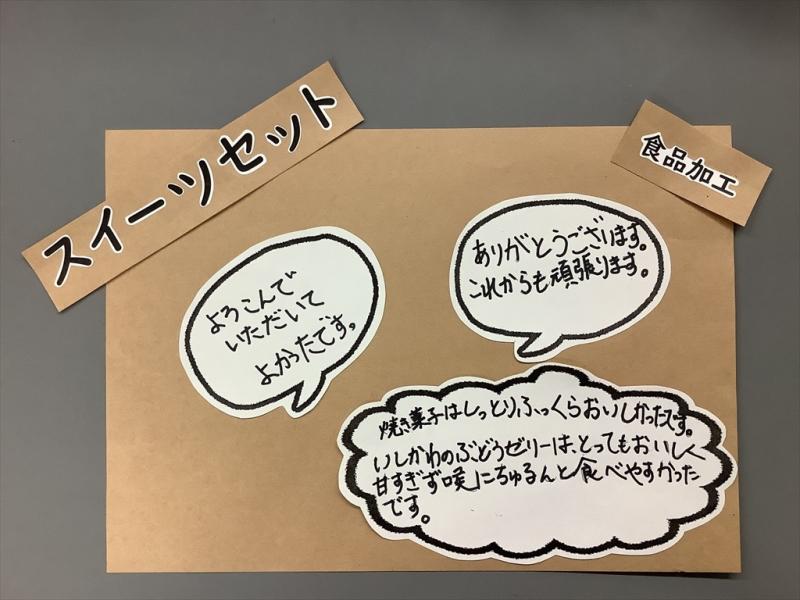 スイーツセット
食品加工
よろこんで
いただいて
よかったです。
ありがとうございます。
これからも頑張ります。
焼き菓子はしっとりふっくらおいしかったです。
いしかわのぶどうゼリーは、とってもおいしく
甘すぎず咲にちゅるんと食べやすかった
です。